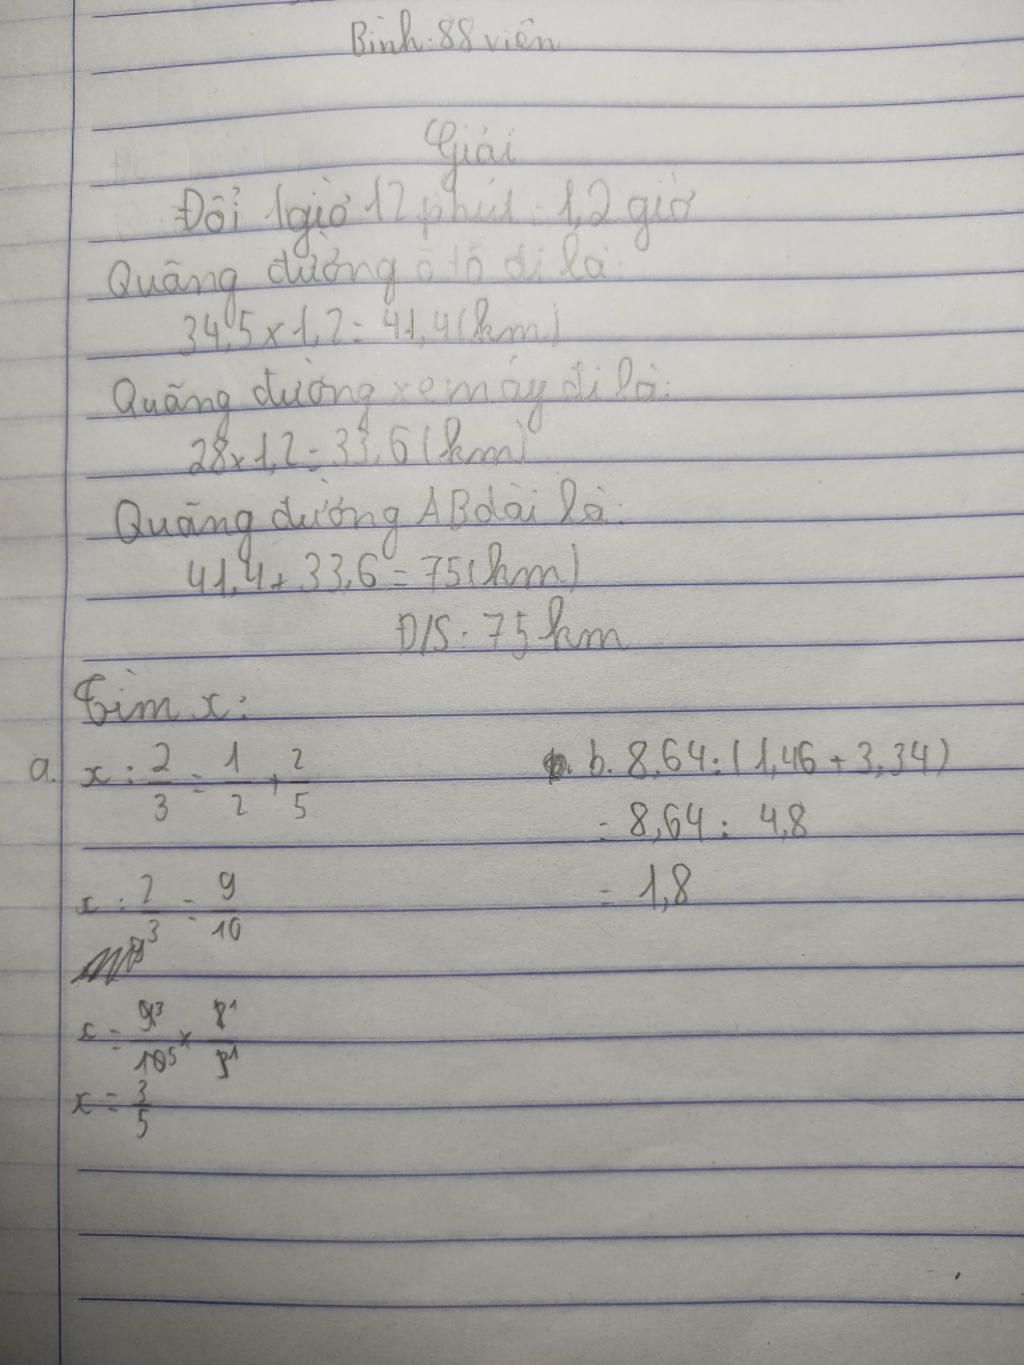 Bình: 88 viên
Giải
Đổi 1 giờ 12 phút = 1,2 giờ
Quãng đường ô tô đi là:
34,5 x 1,2 = 41,4 (km)
Quãng đường xe máy đi là:
28 x 1,2 = 33,6 (km)
Quãng đường AB dài là:
41,4 + 33,6 = 75 (km)
Đ/S: 75 km
Tìm x:
a. x : 2/3 = 1/2 + 2/5
x : 2/3 = 9/10
x = 9³/10⁵ x 2¹/3¹
x = 3/5
b. 8,64 : (1,46 + 3,34)
= 8,64 : 4,8
= 1,8